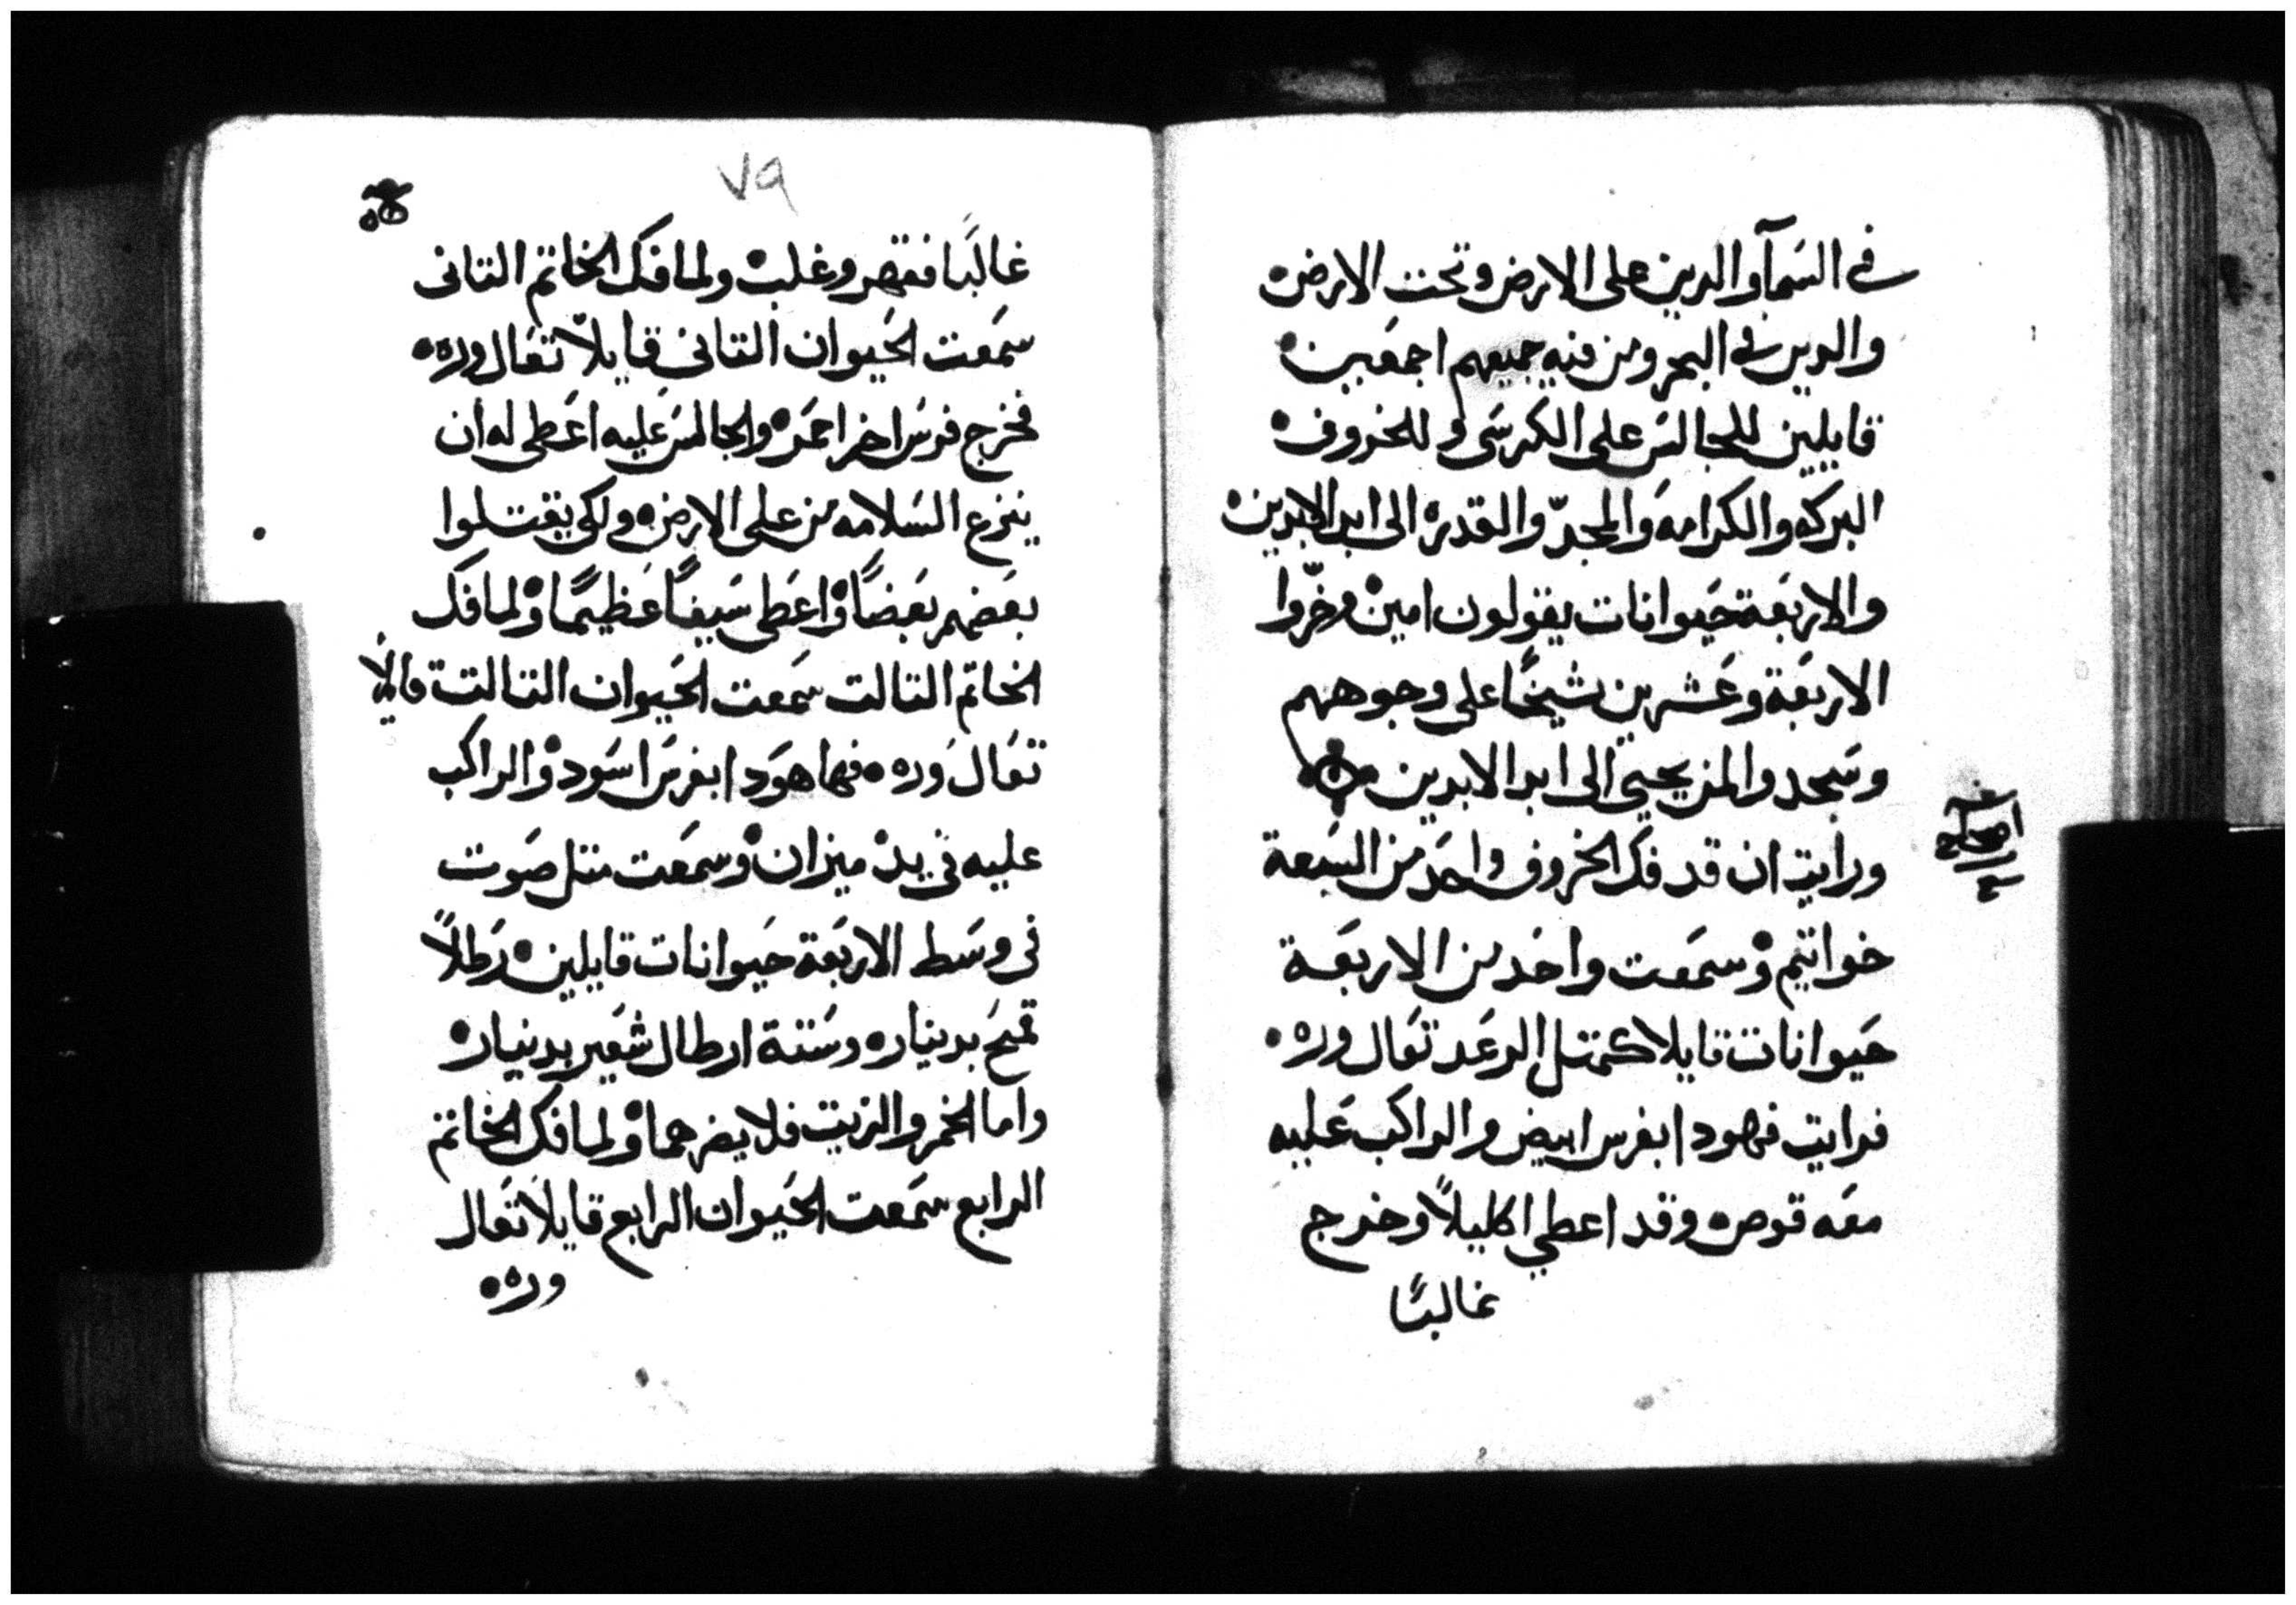 في السمآ والدين على الارض وتحت الارض
والدين في البحر ومن فيه جميعهم اجمعين
قايلين للجالس على الكرسي وللخروف
البركه والكرامه والمجد والقدره الى ابد الابدين
والاربعة حيوانات يقولون امين وخرّوا
الاربعة وعشرين شيخًا على وجوههم
وسجدوا لمن يحيي الى ابد الابدين
اصحاح
ورايت ان قد فك الخروف واحد من السبعة
خواتيم وسمعت واحد من الاربعة
حيوانات قايلا كمتل الرعد تعال وره
فرايت فهودا بفرس ابيض والراكب عليه
معه قوص وقد اعطي اكليلاً وخرج
غالبًا
٧٩
غالبًا فقهر وغلب ولما فك الخاتم التاني
سمعت الحيوان التاني قايلاً تعال وره
فخرج فرس اخر احمر والجالس عليه اعطى له ان
ينزع السلامه من على الارض ولكي يقتلوا
بعضهم بعضاً واعطى سيفاً عظيمًا ولما فك
الخاتم التالت سمعت الحيوان التالت قايلاً
تعال وره فها هودا بفرس اسود والراكب
عليه في يده ميزان وسمعت متل صوت
في وسط الاربعة حيوانات قايلين رطلاً
قمح بدينار وستة ارطال شعير بدينار
واما الخمر والزيت فلا يضرهما ولما فك الخاتم
الرابع سمعت الحيوان الرابع قايلاً تعال
وره